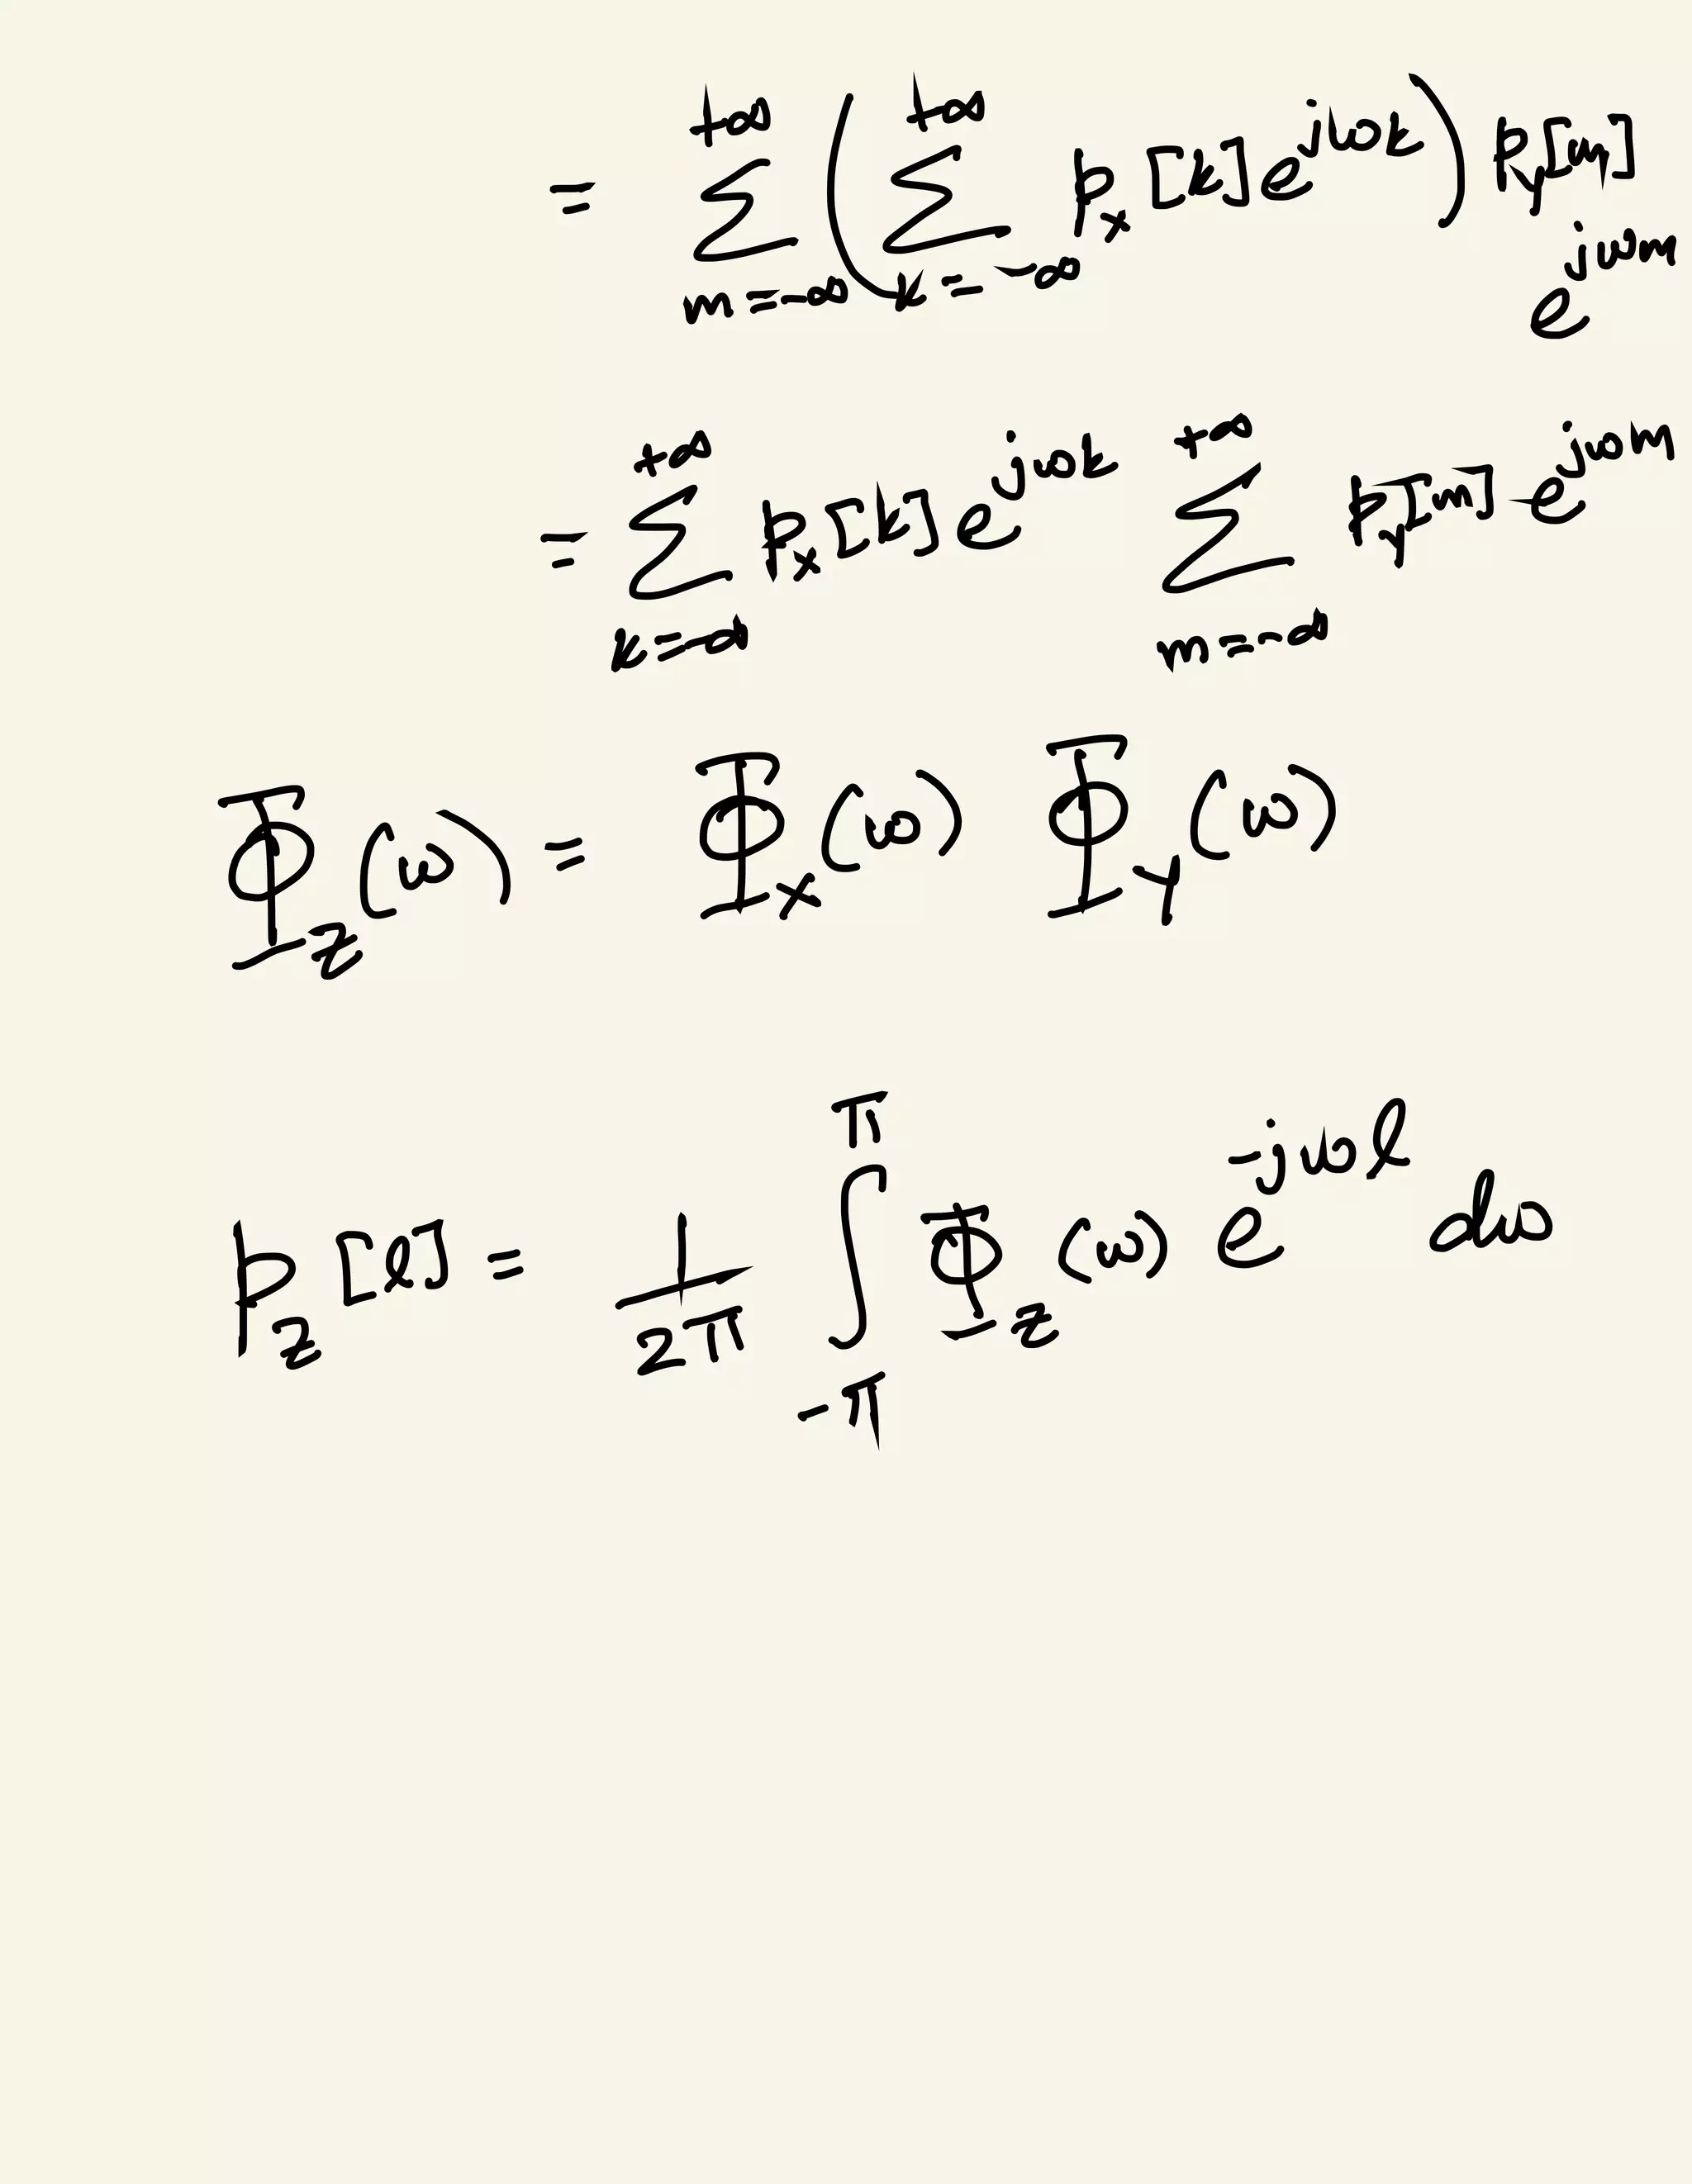 = \sum_{m=-\infty}^{+\infty} \left( \sum_{k=-\infty}^{+\infty} p_X[k] e^{j\omega k} \right) p_Y[m] e^{j\omega m}
= \sum_{k=-\infty}^{+\infty} p_X[k] e^{j\omega k} \sum_{m=-\infty}^{+\infty} p_Y[m] e^{j\omega m}
\Phi_Z(\omega) = \Phi_X(\omega) \Phi_Y(\omega)
p_Z[l] = \frac{1}{2\pi} \int_{-\pi}^{\pi} \Phi_Z(\omega) e^{-j\omega l} d\omega